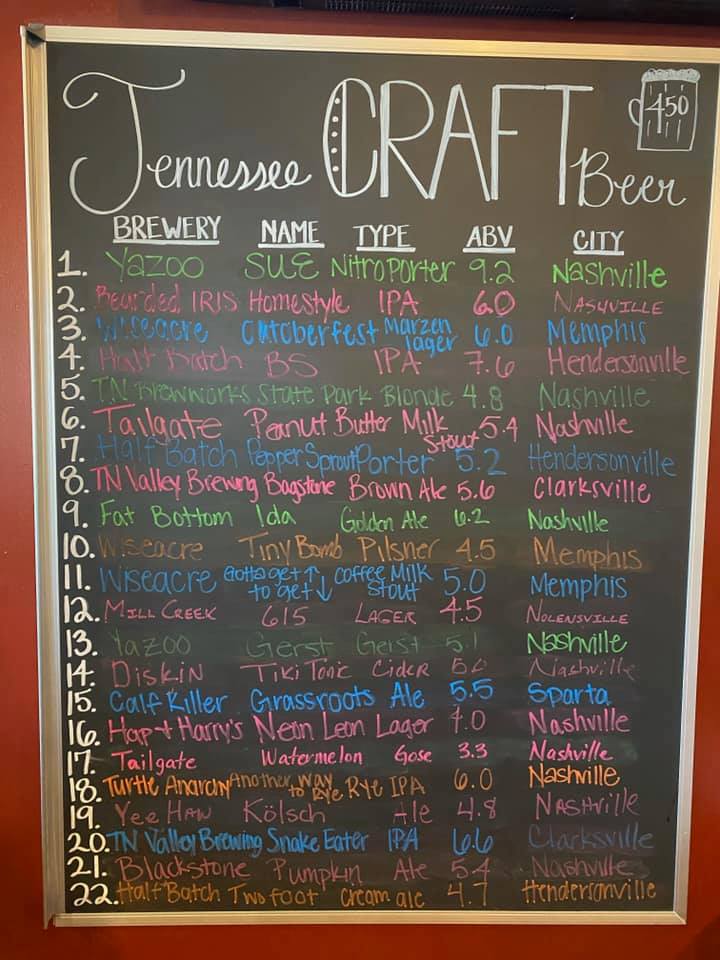 Tennessee CRAFT Beer 4.50
BREWERY NAME TYPE ABV CITY
1. Yazoo SUE Nitro Porter 9.2 Nashville
2. Bearded IRIS Homestyle IPA 6.0 NASHVILLE
3. Wiseacre Oktoberfest Marzen lager 6.0 Memphis
4. Half Batch BS IPA 7.6 Hendersonville
5. TN Brewworks State Park Blonde 4.8 Nashville
6. Tailgate Peanut Butter Milk Stout 5.4 Nashville
7. Half Batch Pepper Sprout Porter 5.2 Hendersonville
8. TN Valley Brewing Bagstone Brown Ale 5.6 Clarksville
9. Fat Bottom Ida Golden Ale 6.2 Nashville
10. Wiseacre Tiny Bomb Pilsner 4.5 Memphis
11. Wiseacre Gotta get ↑ to get ↓ coffee Milk Stout 5.0 Memphis
12. MILL CREEK 615 LAGER 4.5 NOLENSVILLE
13. Yazoo Gerst Geist 5.1 Nashville
14. Diskin Tiki Tonic Cider Nashville
15. Calf Killer Grassroots Ale 5.5 Sparta
16. Hap + Harry's Neon Leon Lager Nashville
17. Tailgate Watermelon Gose 3.3 Nashville
18. Turtle Anarchy Another Way to Rye Rye IPA 6.0 Nashville
19. Yee HAW Kölsch Ale 4.8 NASHVille
20. TN Valley Brewing Snake Eater IPA 6.6 Clarksville
21. Blackstone Pumpkin Ale 5.4 Nashville
22. Half Batch Two foot cream ale 4.7 Hendersonville